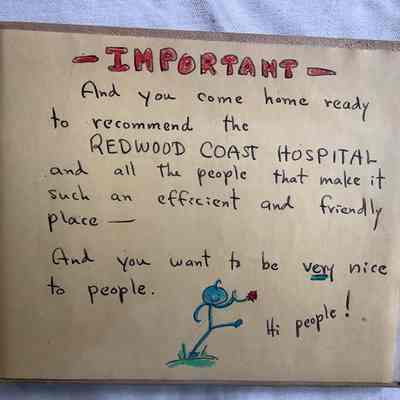 - IMPORTANT -
And you come home ready
to recommend the
REDWOOD COAST HOSPITAL
and all the people that make it
such an efficient and friendly
place —
And you want to be very nice
to people.
Hi people!